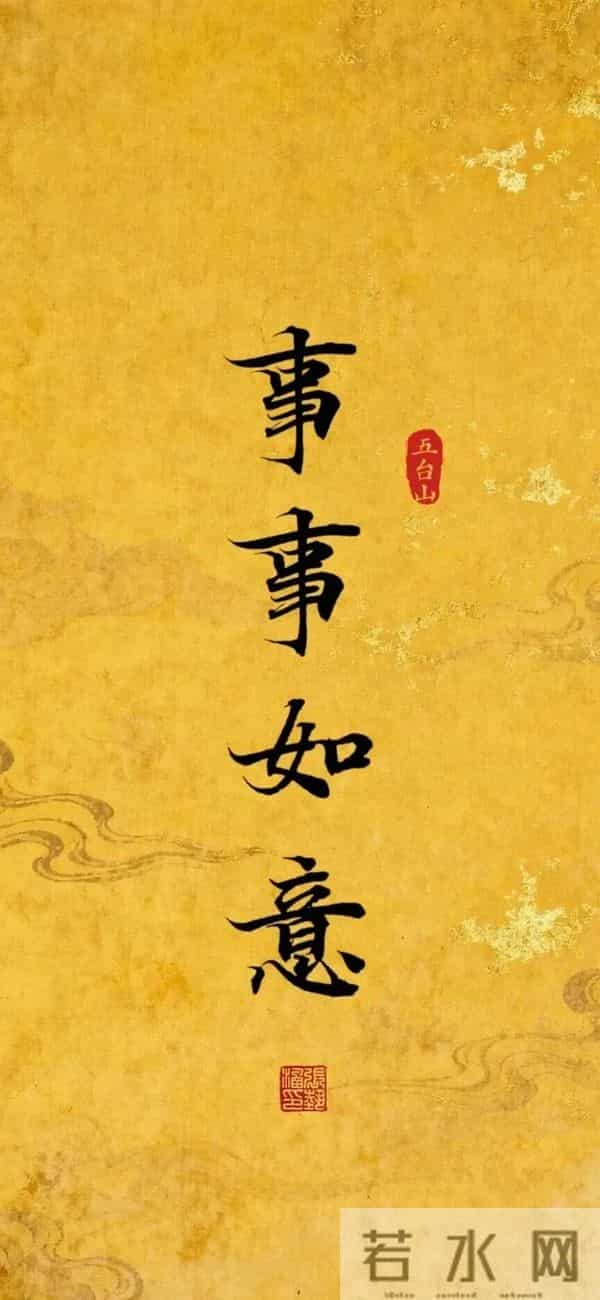 事事如意
五台山
若水网